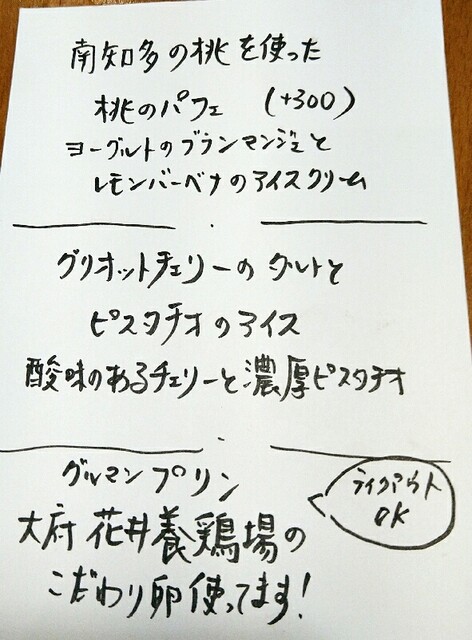 南知多の桃を使った
桃のパフェ (+300)
ヨーグルトのブランマンジェと
レモンバーベナのアイスクリーム
グリオットチェリーのタルトと
ピスタチオのアイス
酸味のあるチェリーと濃厚ピスタチオ
グルマンプリン
テイクアウト
OK
大府 花井養鶏場の
こだわり卵使ってます!